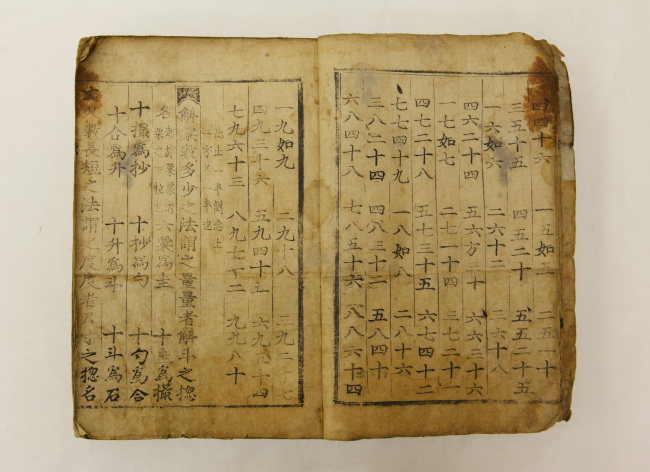 四四十六 一五如五 二五一十
三五十五 四五二十 五五二十五
一六如六 二六十二 三六十八
四六二十四 五六方十 六六三十六
一七如七 二七一十四 三七二十一
四七二十八 五七三十五 六七四十二
七七四十九 一八如八 二八十六
三八二十四 四八三十二 五八四十
六八四十八 七八五十六 八八六十四
一九如九 二九十八 三九二十七
四九三十六 五九四十五 六九五十四
七九六十三 八九七十二 九九八十
斛粟數多少之法謂之量量者斛斗之揔
名 六粟爲圭 十圭爲撮
十撮爲抄 十抄爲勺 十勺爲合
十合爲升 十升爲斗 十斗爲石
數長短之法謂之度度者尺寸之揔名